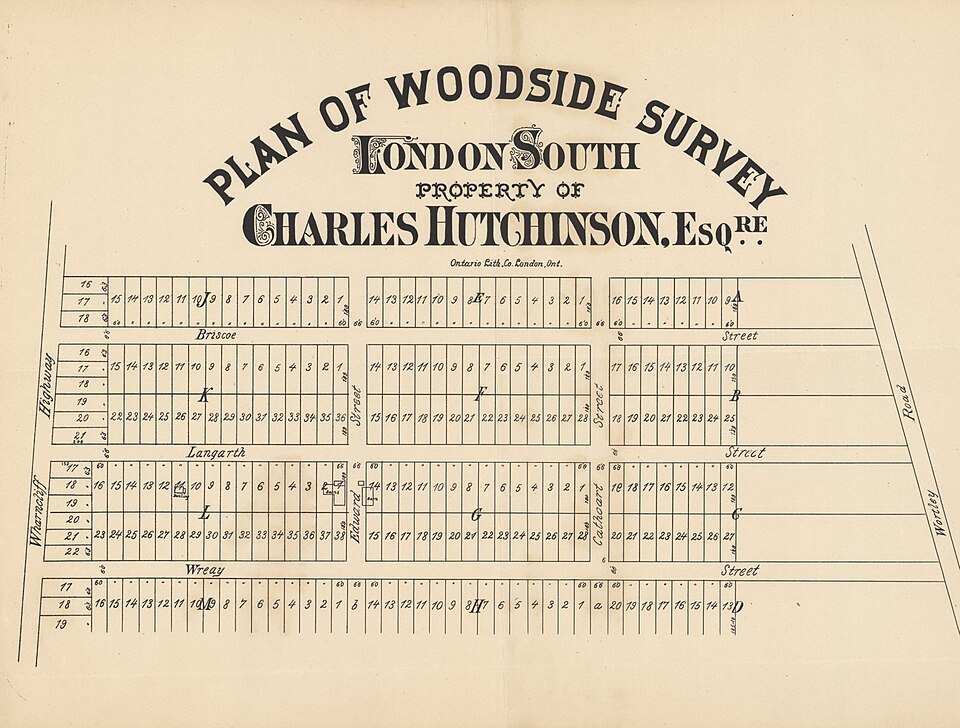 PLAN OF WOODSIDE SURVEY
LONDON SOUTH
PROPERTY OF
CHARLES HUTCHINSON, ESQRE
Ontario Lith. Co. London, Ont.
16
17
18
15 14 13 12 11 10 9 8 7 6 5 4 3 2 1
J
14 13 12 11 10 9 8 7 6 5 4 3 2 1
E
16 15 14 13 12 11 10 9
A
Briscoe Street
16
17
18
19
20
21
15 14 13 12 11 10 9 8 7 6 5 4 3 2 1
K
22 23 24 25 26 27 28 29 30 31 32 33 34 35 36
14 13 12 11 10 9 8 7 6 5 4 3 2 1
F
15 16 17 18 19 20 21 22 23 24 25 26 27 28
17 16 15 14 13 12 11 10
B
18 19 20 21 22 23 24 25
Langarth Street
17
18
19
20
21
22
16 15 14 13 12 11 10 9 8 7 6 5 4 3
L
23 24 25 26 27 28 29 30 31 32 33 34 35 36 37 38
14 13 12 11 10 9 8 7 6 5 4 3 2 1
G
15 16 17 18 19 20 21 22 23 24 25 26 27 28
18 17 16 15 14 13 12
C
20 21 22 23 24 25 26 27
Wreay Street
17
18
19
16 15 14 13 12 11 10 9 8 7 6 5 4 3 2 1 b
M
14 13 12 11 10 9 8 7 6 5 4 3 2 1 a
H
20 19 18 17 16 15 14 13
D
Wharncliff Highway
Edward Street
Cathcart Street
Wortley Road